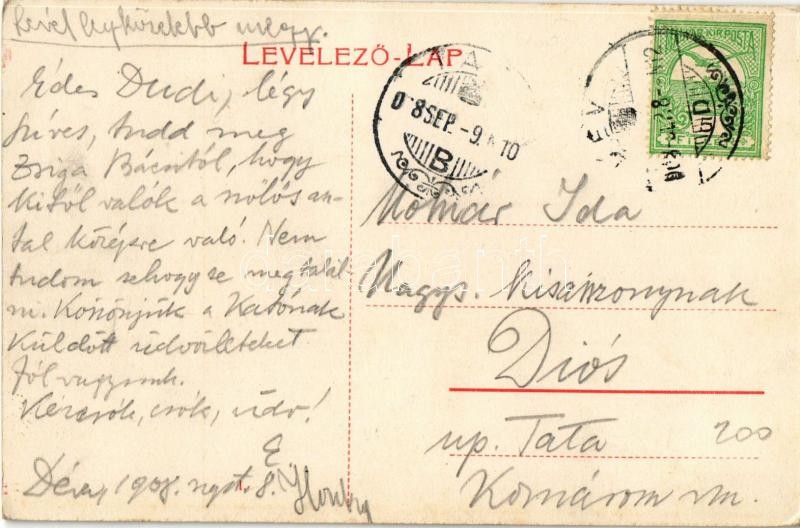 Levél legközelebb megy.
LEVELEZŐ-LAP
Édes Dudi, légy
szíves, tudd meg
Zsiga Bácsitól, hogy
kitől valók a szőlős an-
tal közepre való. Nem
tudom sehogy se megtalál-
ni. Köszönjük a Katónak
küldött üdvözleteket
Jól vagyunk.
Kézcsók, csók, üdv!
E
Déva, 1908. 8.
08 SEP. -9.
B
MAGY. KIR. POSTA
Molnár Ida
Nagys. kisasszonynak
Diós
up. Tata
Komárom m.
200
darabanth